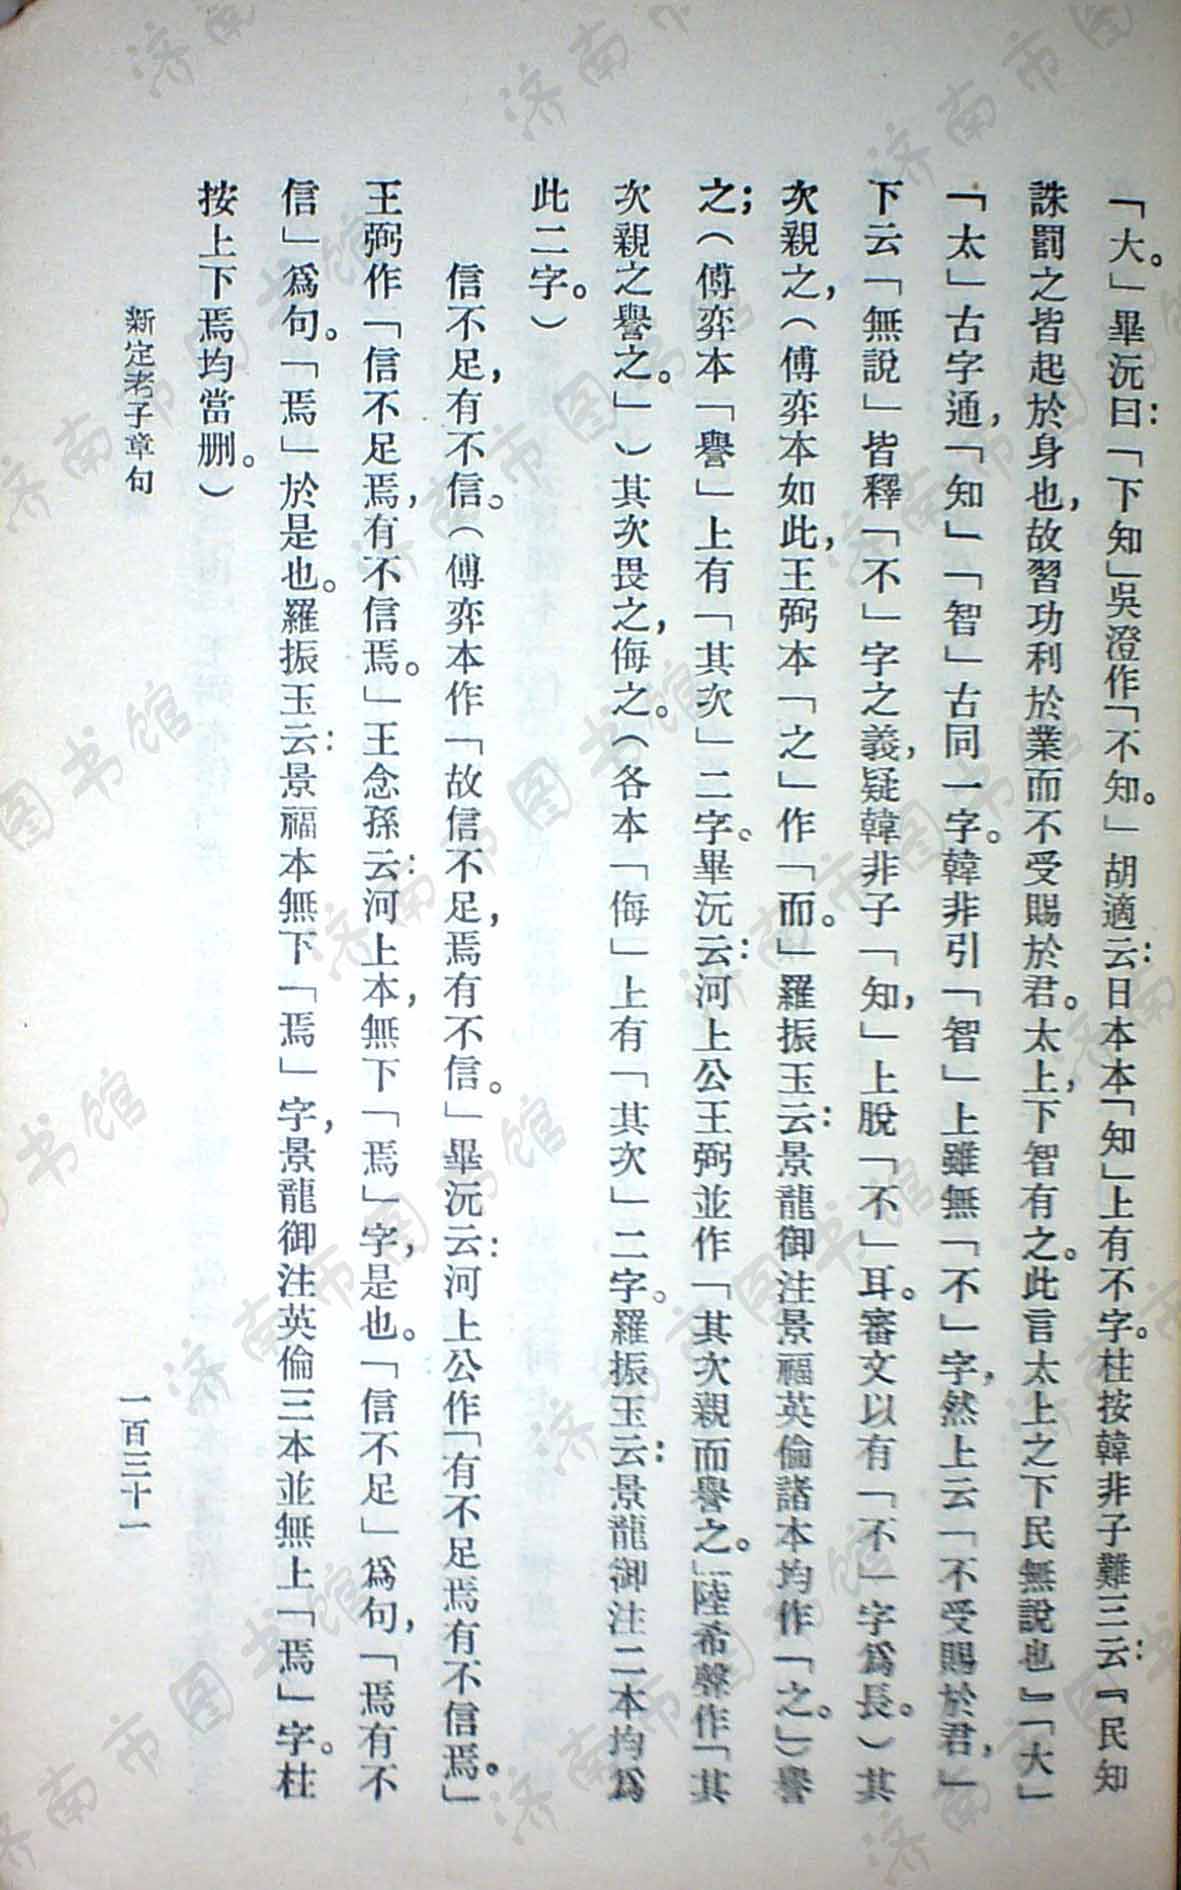 「大。」畢沅曰：「下知」吳澄作「不知。」胡適云：日本本「知」上有不字。柱按韓非子難三云：『民知
誅罰之皆起於身也，故習功利於業而不受賜於君。太上，下智有之。此言太上之下民無說也』「大」
「太」古字通，「知」「智」古同一字。韓非引「智」上雖無「不」字，然上云「不受賜於君，」
下云「無說」皆釋「不」字之義，疑韓非子「知，」上脫「不」耳。審文以有「不」字爲長。）其
次親之，（傅弈本如此，王弼本「之」作「而。」羅振玉云：景龍御注景福英倫諸本均作「之。」）譽
之；（傅弈本「譽」上有「其次」二字。畢沅云：河上公王弼並作「其次親而譽之。」陸希聲作「其
次親之譽之。」）其次畏之，侮之。（各本「侮」上有「其次」二字。羅振玉云：景龍御注二本均爲
此二字。）
信不足，有不信。（傅弈本作「故信不足，焉有不信。」畢沅云：河上公作「有不足焉有不信焉。」
王弼作「信不足焉，有不信焉。」王念孫云：河上本，無下「焉」字，是也。「信不足」爲句，「焉有不
信」爲句。「焉」於是也。羅振玉云：景福本無下「焉」字，景龍御注英倫三本並無上「焉」字。柱
按上下焉均當删。）
新定老子章句
一百三十一
济南市图书馆